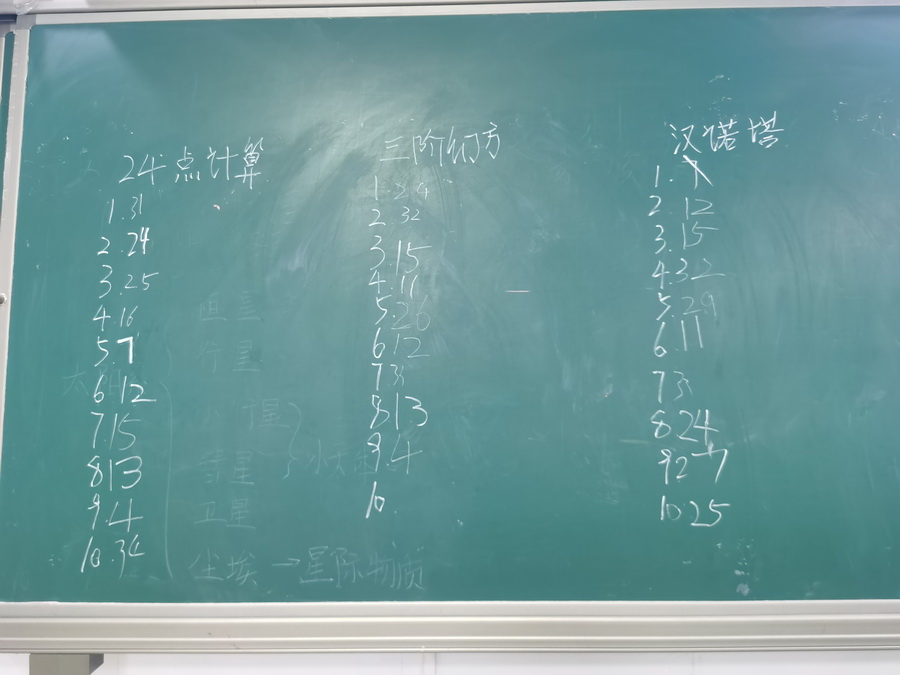 24点计算
1.31
2.24
3.25
4.16
5.7
6 12
7.15
8 13
9.4
10.34
三阶幻方
1.24
2.32
3.15
4.11
5.26
6 12
7 31
8 13
9.4
10.
汉诺塔
1.
2.12
3.15
4.32
5.29
6.11
7 31
8 24
9 27
10 25
行星
卫星
尘埃→星际物质